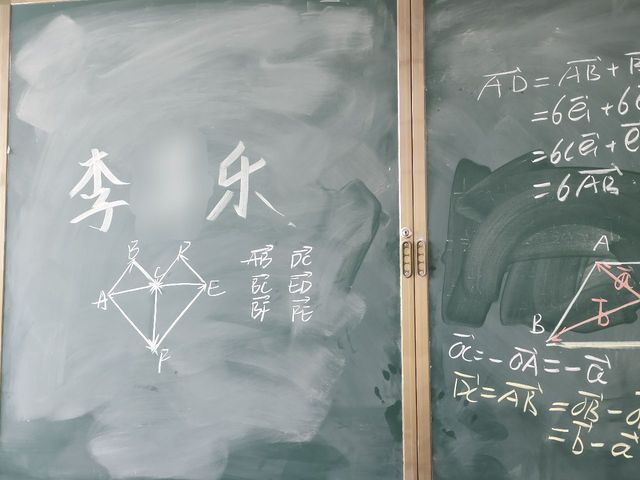 李 乐
B D
C
A E
F
AB DC
BC ED
BF FE
AD = AB + B
= 6e₁ + 6e
= 6(e₁ + e
= 6AB
A
a
b
B
OC = -OA = -a
DC = AB = OB - O
= b - a